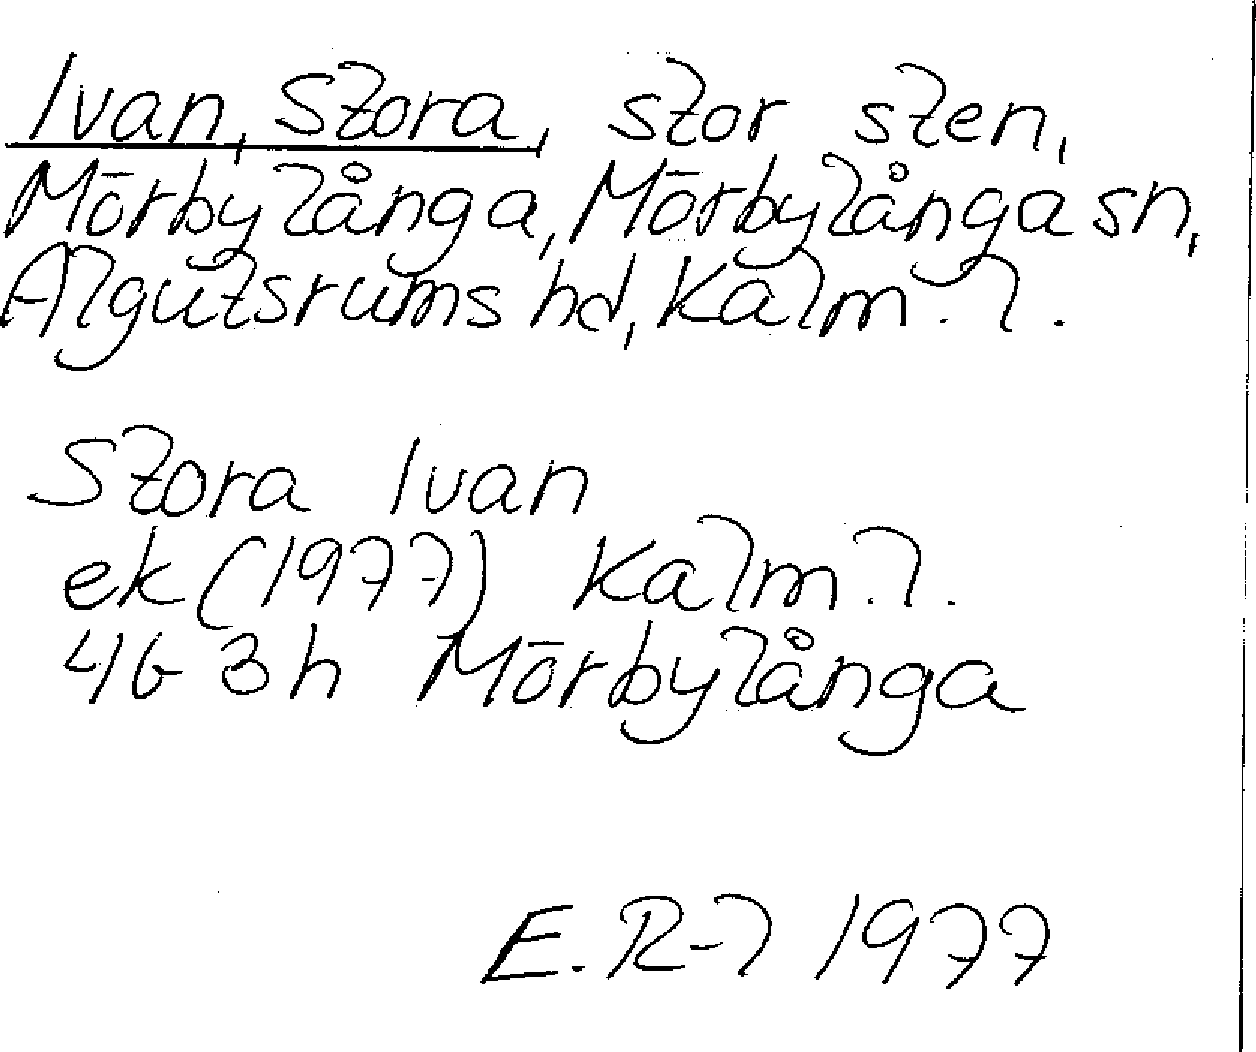 Ivan, Stora, stor sten,
Mörbylånga, Mörbylånga sn,
Algutsrums hd, Kalm. l.
Stora Ivan
ek (1977) Kalm. l.
4G 3h Mörbylånga
E. R-l 1977